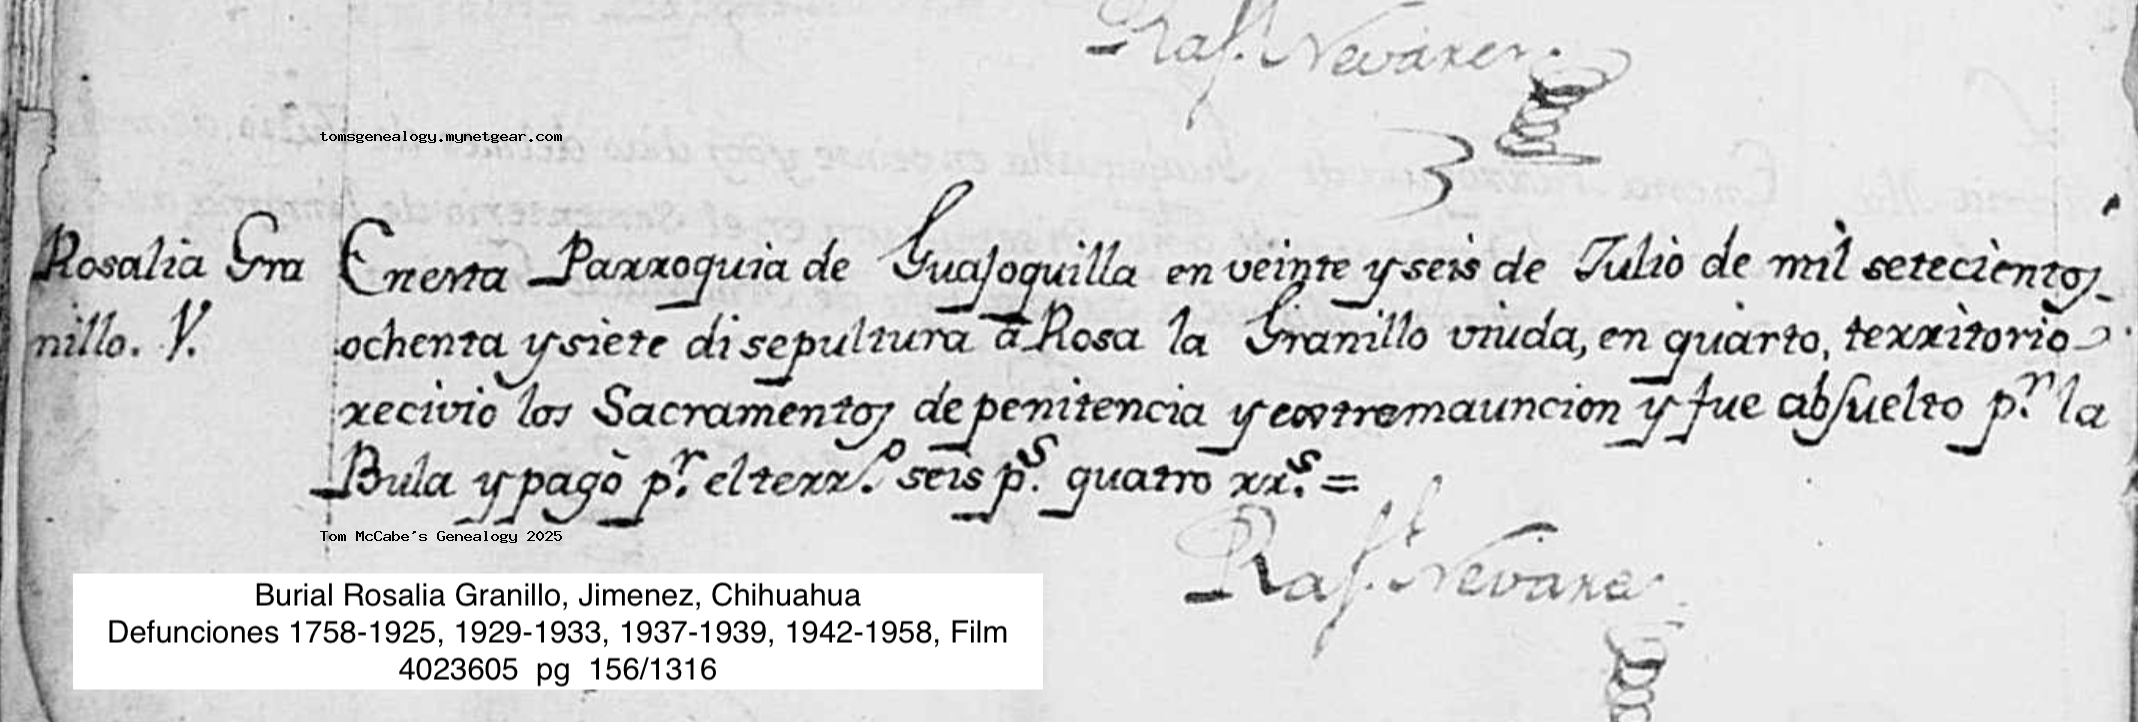 Raf.l Nevares.
tomsgenealogy.mynetgear.com
Rosalia Gra
nillo. V.
En esta Parroquia de Guajoquilla en veinte y seis de Julio de mil setecientos
ochenta y siete di sepultura á Rosa la Granillo viuda, en quarto, territorio
recivió los Sacramentos de penitencia y extremauncion y fue absuelto p.r la
Bula y pagò p.r el terr.o seis p.s quatro rr.s =
Tom McCabe's Genealogy 2025
Raf.l Nevares
Burial Rosalia Granillo, Jimenez, Chihuahua
Defunciones 1758-1925, 1929-1933, 1937-1939, 1942-1958, Film
4023605 pg 156/1316